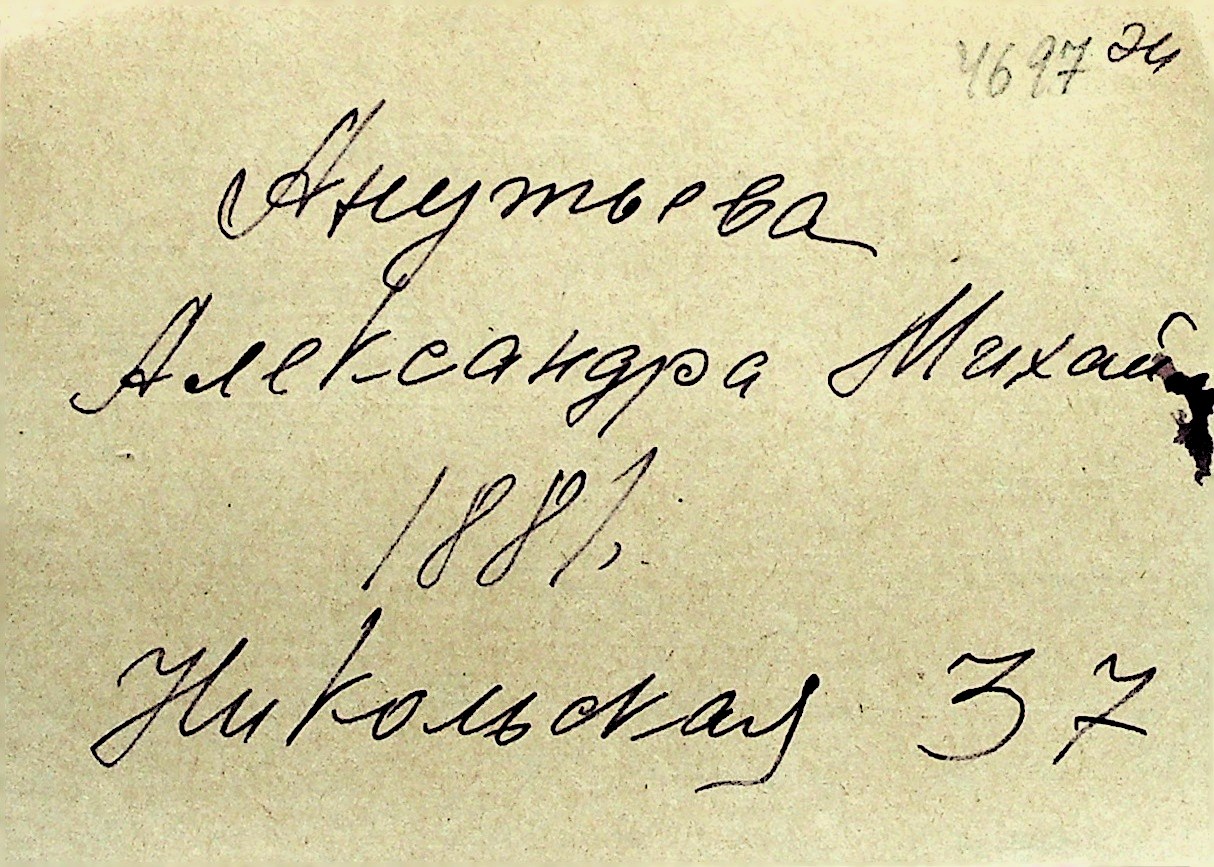 4697 Эи
Анутьева
Александра Михай
1881.
Никольская 37